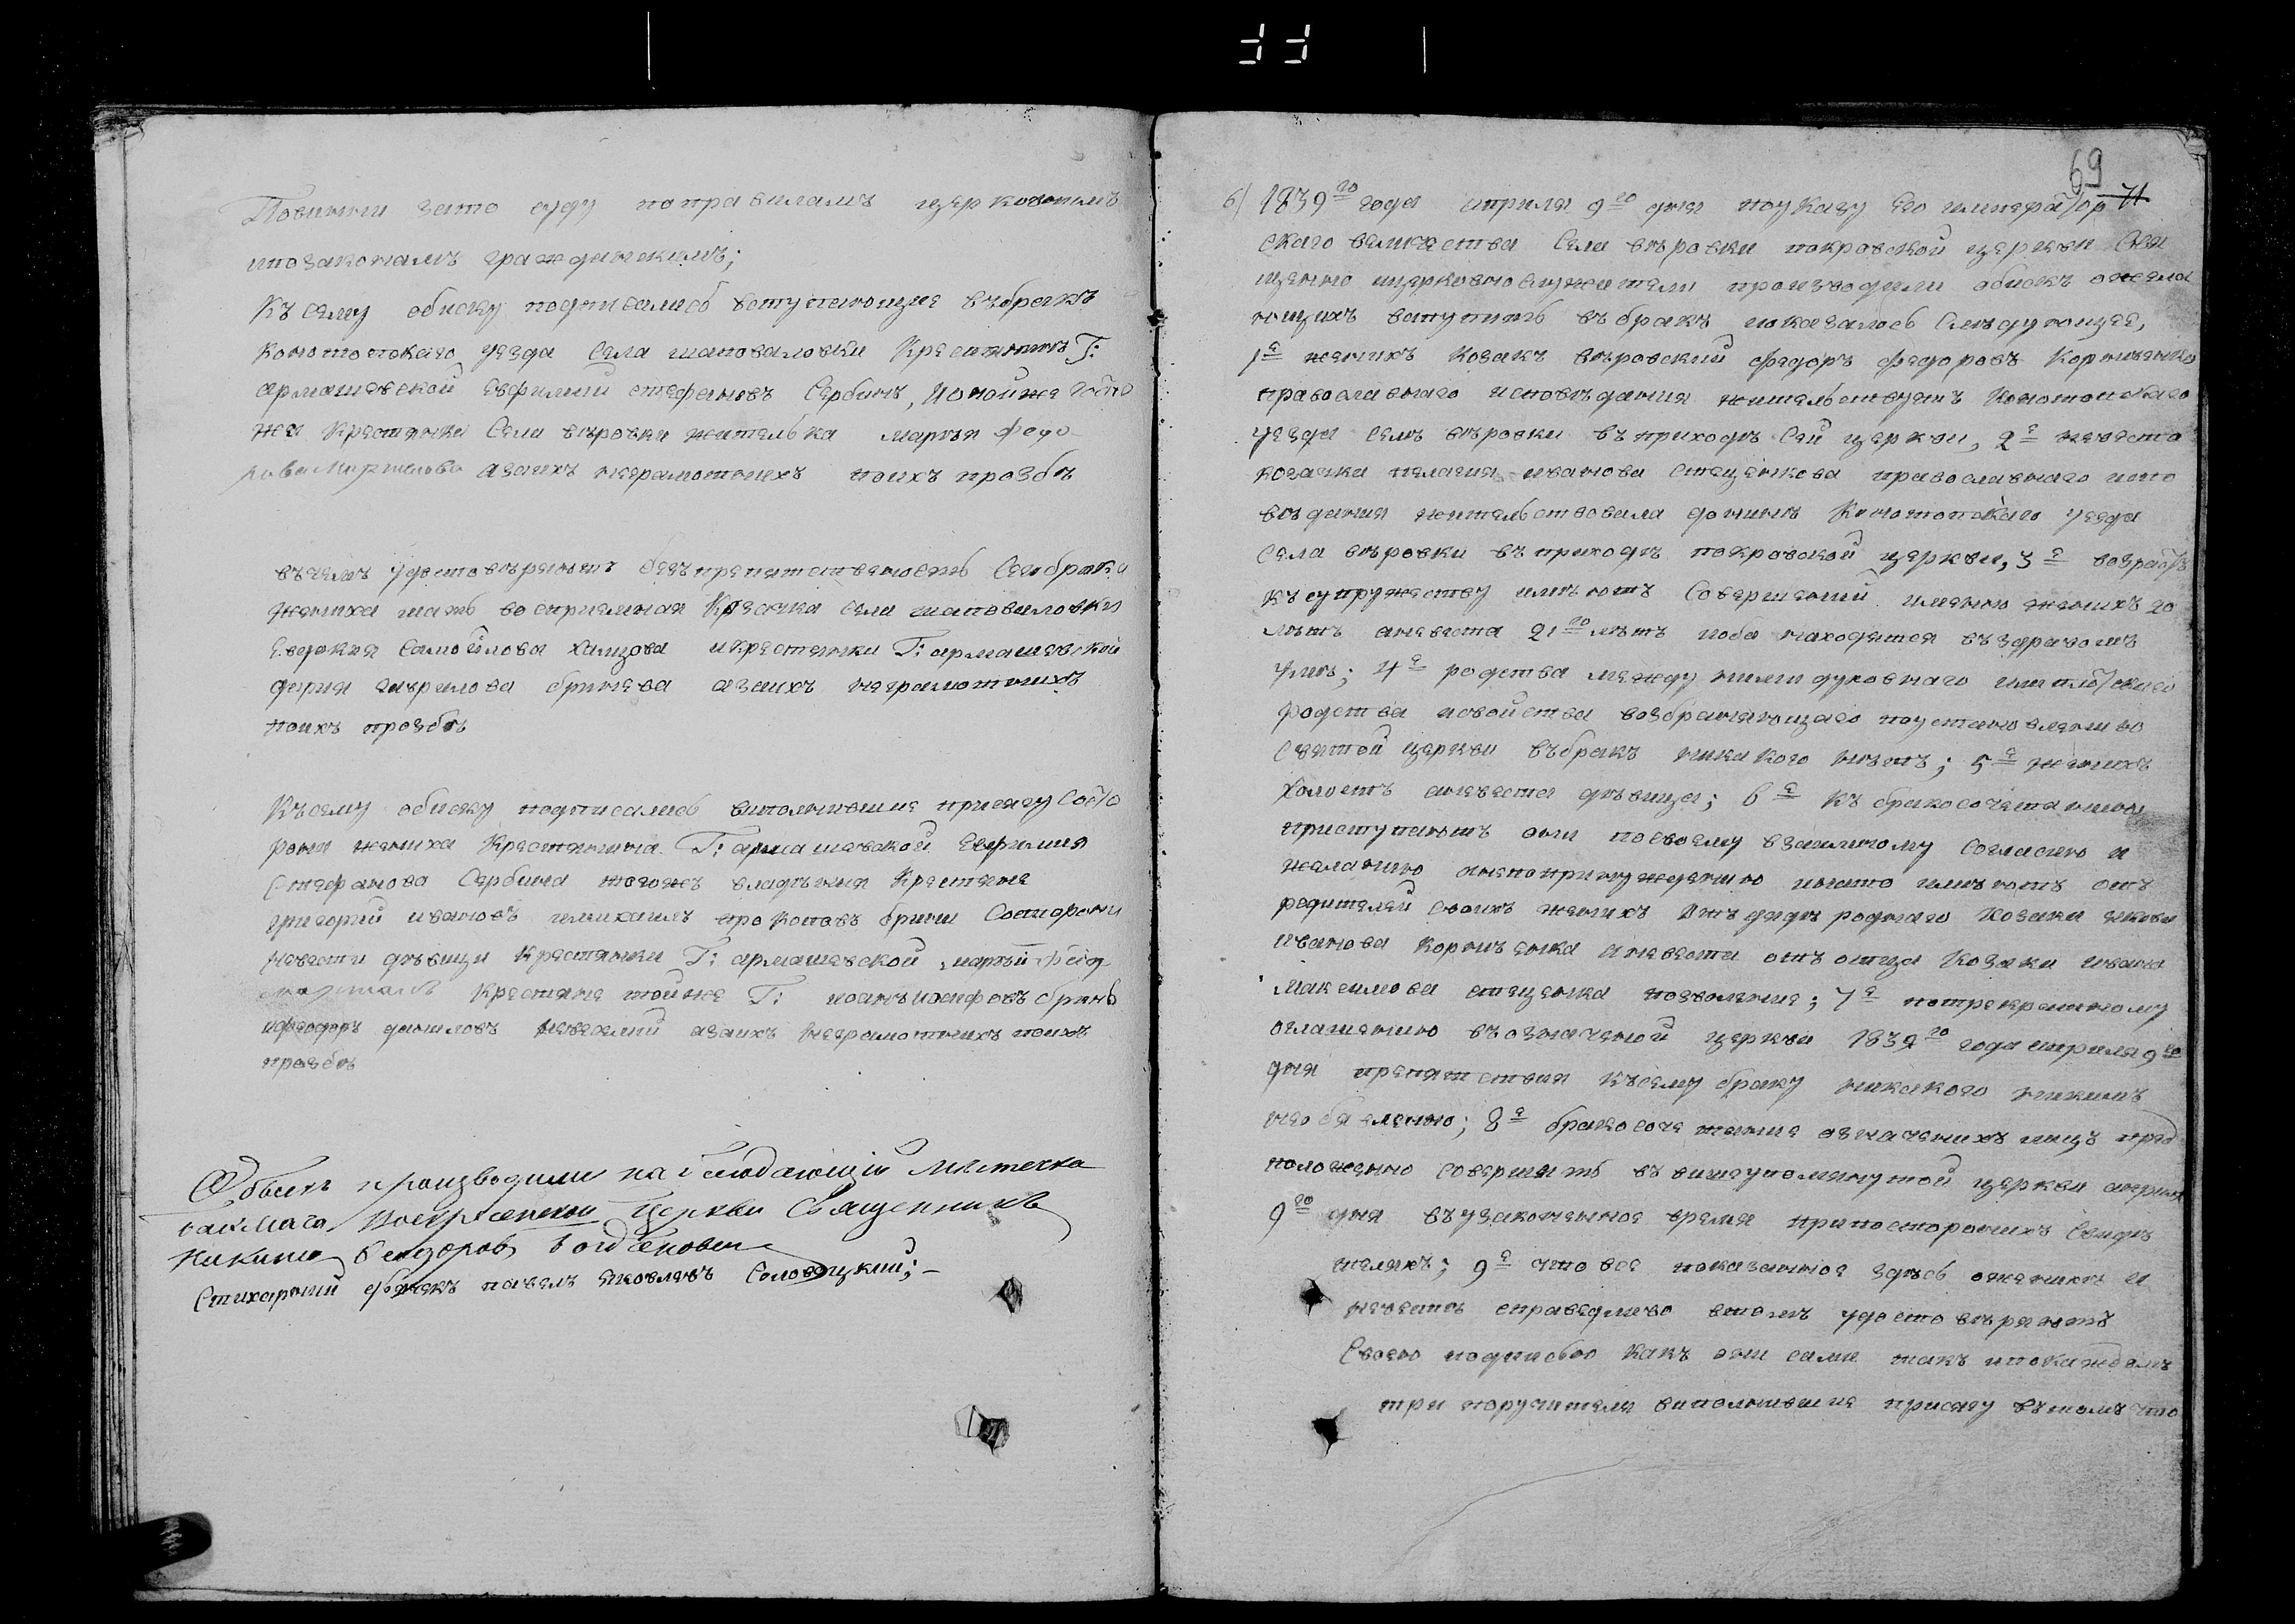 Повинни зато суду поправиламъ церковнимъ
ипозаконамъ гражданскимъ;
Къ сему обиску подписались вступающие въбракъ
Конотопскаго уезда села шаповаловки Крестянинъ Г:
армашевской евфимий стефановъ Сербинъ, ионойже Г
жи Крестянка Села вировки жителька марья федо-
рова азаихъ неграмотнихъ поихъ прозбѣ
въчемъ удостовѣряютъ безпрепятственность Сегобрака
жениха мать восприемная Козачка села шаповаловки
евдокия Самойлова халзова икрестянки Г: армашевской
дария гаврилова бринева азаихъ неграмотнихъ
поихъ прозбѣ
Къ сему обиску подписались виполнившие присягу Состо
рони жениха Крестянина Г: армашевской евфимия
Стефанова Сербина тогожъ владѣния Крестяне
григорий ивановъ имихаилъ прокоповъ брини Состорони
невести дѣвици Крестянки Г: армашевской марьи
Крестяне тойже Г: иоанъ иосифовъ бринь
ифеодоръ даниловъ азаихъ неграмотнихъ поихъ
прозбѣ
Обыскъ производили наблюдающій мѣстечка
бахмача воскресенской Церкви Священникъ
Никита
Стихарний дьячекъ павелъ яковлевъ Соловицкий;-
69
71
6) 1839го года априля 9го дня поуказу Его император
скаго величества Села вировки покровской церкви Свя
щенно ицерковнослужители производили обискъ ожела
ющихъ вступить въбракъ иоказалось Слѣдующее,
1е женихъ Козакъ вировский федоръ федоровъ Корниенко
православнаго исповѣдания жительствуетъ Конотопскаго
уезда селѣ вировки въприходѣ Сей церкви, 2е невеста
козачка пелагия иванова стеценкова православнаго испо
вѣдания жительствовала донинѣ Конотопскаго уезда
Села вировки въприходѣ покровской церкви, 3е возрастъ
къ супружеству имѣютъ Совершенний именно женихъ 20
лѣтъ аневеста 21го лѣтъ иоба находятся въздравомъ
умѣ; 4е родства между ними духовнаго или плотскаго
родства исвойства возбраняющаго поустановлению
Святой церкви въбракъ никакого нѣтъ; 5е женихъ
холостъ аневеста дѣвица; 6е къ бракосочетанию
приступаютъ они посвоему взаимному Согласию и
желанию анепопринуждению инато имѣютъ отъ
родителей своихъ женихъ отъ дяди роднаго Козака якова
иванова Корниенка аневеста отъ отца Козака ивана
Максимова стеценка позволение; 7е потрекратному
оглашению въозначеной церкви 1839го года априля 9го
дня препятствия къ сему браку никакого никимъ
необявлено; 8е бракосочетание означенихъ лицъ пред
положено совершить въ вишеупомянутой церкви априля
9го дня въузаконенное время припостороннихъ свидѣ
теляхъ; 9е что все показанное здѣсь оженихѣ и
невестѣ справедливо втомъ удостовѣряютъ
Своею подписью какъ они сами такъ ипокаждомъ
три поручителя виполнившие присягу въ томъ что